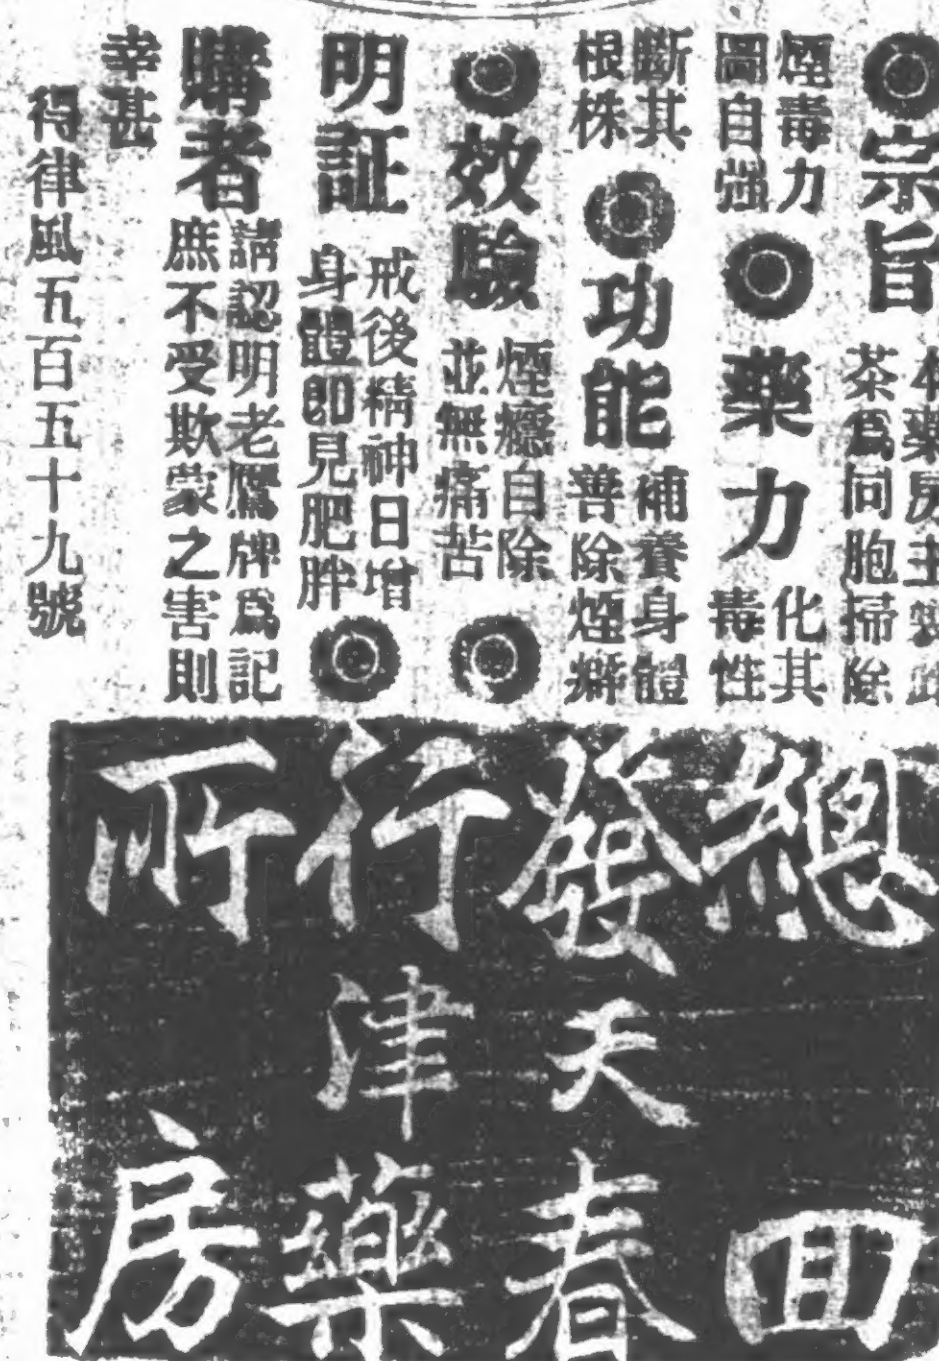 宗旨
本藥房主
茶爲同胞掃除
煙毒力
圖自强
藥力
化其
毒性
斷其
根株
功能
補養身體
善除煙癖
效驗
煙癮自除
並無痛苦
明証
戒後精神日增
身體即見肥胖
購者
請認明老鷹牌爲記
庶不受欺蒙之害則
幸甚
得律風五百五十九號
總發行所
天津
回春藥房